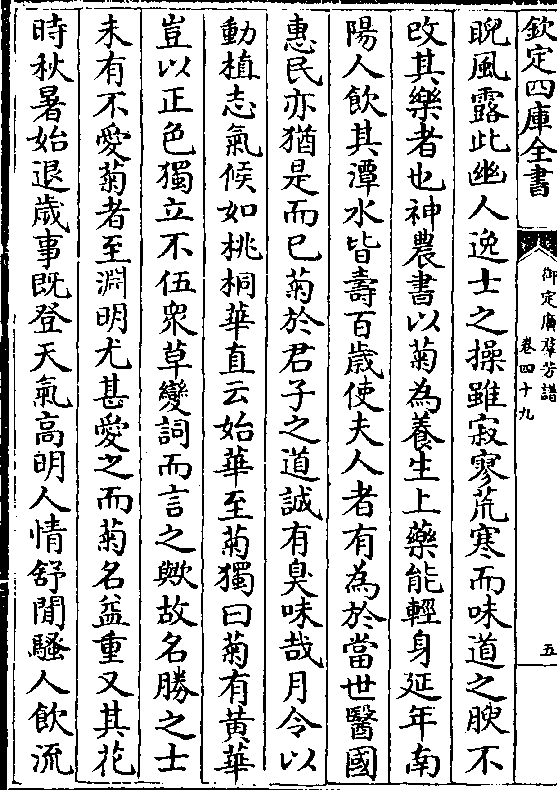 欽定四庫全書
御定廣羣芳譜
卷四十九
五
睨風露此幽人逸士之操雖寂寥荒寒而味道之腴不
改其樂者也神農書以菊為養生上藥能輕身延年南
陽人飲其潭水皆壽百歲使夫人者有為於當世醫國
惠民亦猶是而已菊於君子之道誠有臭味哉月令以
動植志氣候如桃桐華直云始華至菊獨曰菊有黃華
豈以正色獨立不伍衆草變詞而言之歟故名勝之士
未有不愛菊者至淵明尤甚愛之而菊名益重又其花
時秋暑始退歲事既登天氣高明人情舒閒騷人飲流